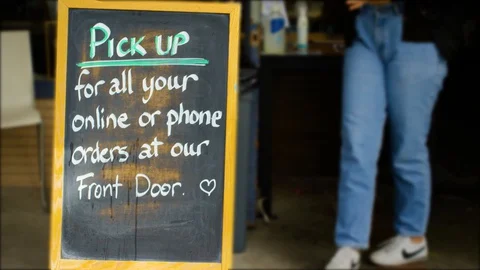 Pick up
for all your
online or phone
orders at our
Front Door. ♡